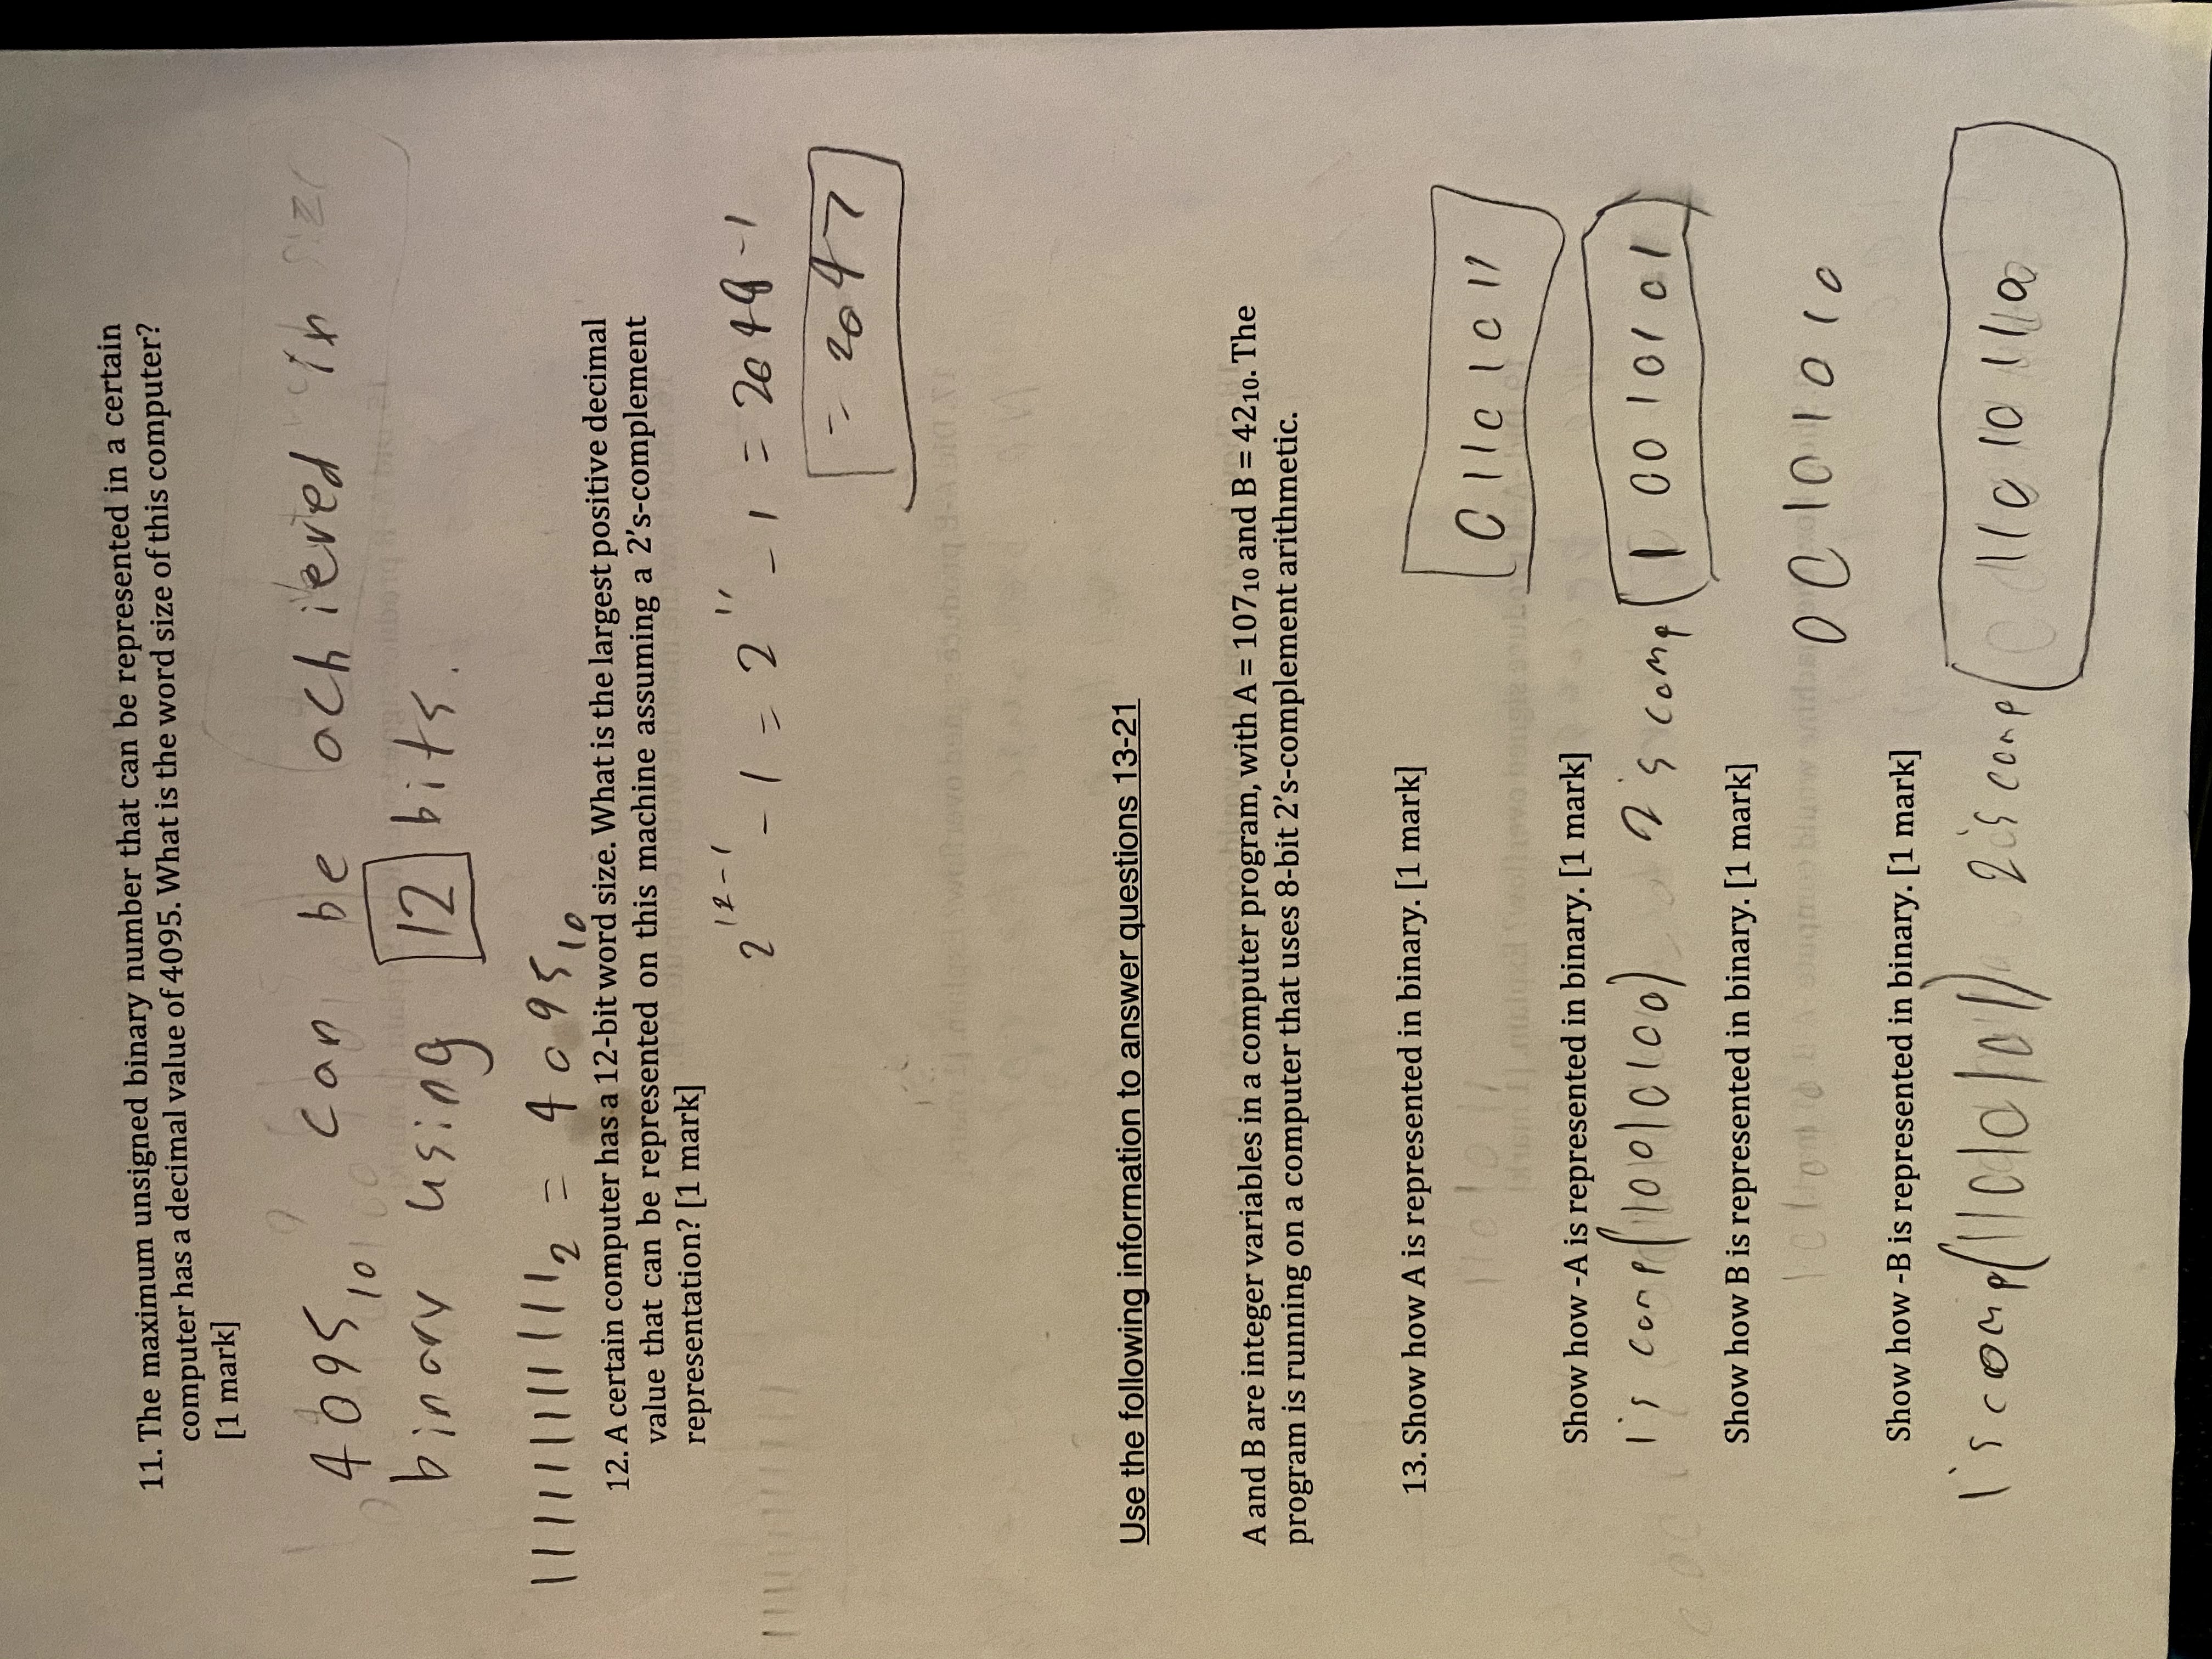 11. The maximum unsigned binary number that can be represented in a certain
computer has a decimal value of 4095. What is the word size of this computer?
[1 mark]
4095₁₀ can be achieved in
binary using 12 bits.
111111111111₂ = 4095₁₀
12. A certain computer has a 12-bit word size. What is the largest positive decimal
value that can be represented on this machine assuming a 2's-complement
representation? [1 mark]
2¹²⁻¹ - 1 = 2¹¹ - 1 = 2048 - 1
= 2047
Use the following information to answer questions 13-21
A and B are integer variables in a computer program, with A = 107₁₀ and B = 42₁₀. The
program is running on a computer that uses 8-bit 2's-complement arithmetic.
13. Show how A is represented in binary. [1 mark]
01101011
Show how -A is represented in binary. [1 mark]
1's comp(10010100) 2's comp(10010101)
Show how B is represented in binary. [1 mark]
00101010
Show how -B is represented in binary. [1 mark]
1's comp(11010101) 2's comp(11010110